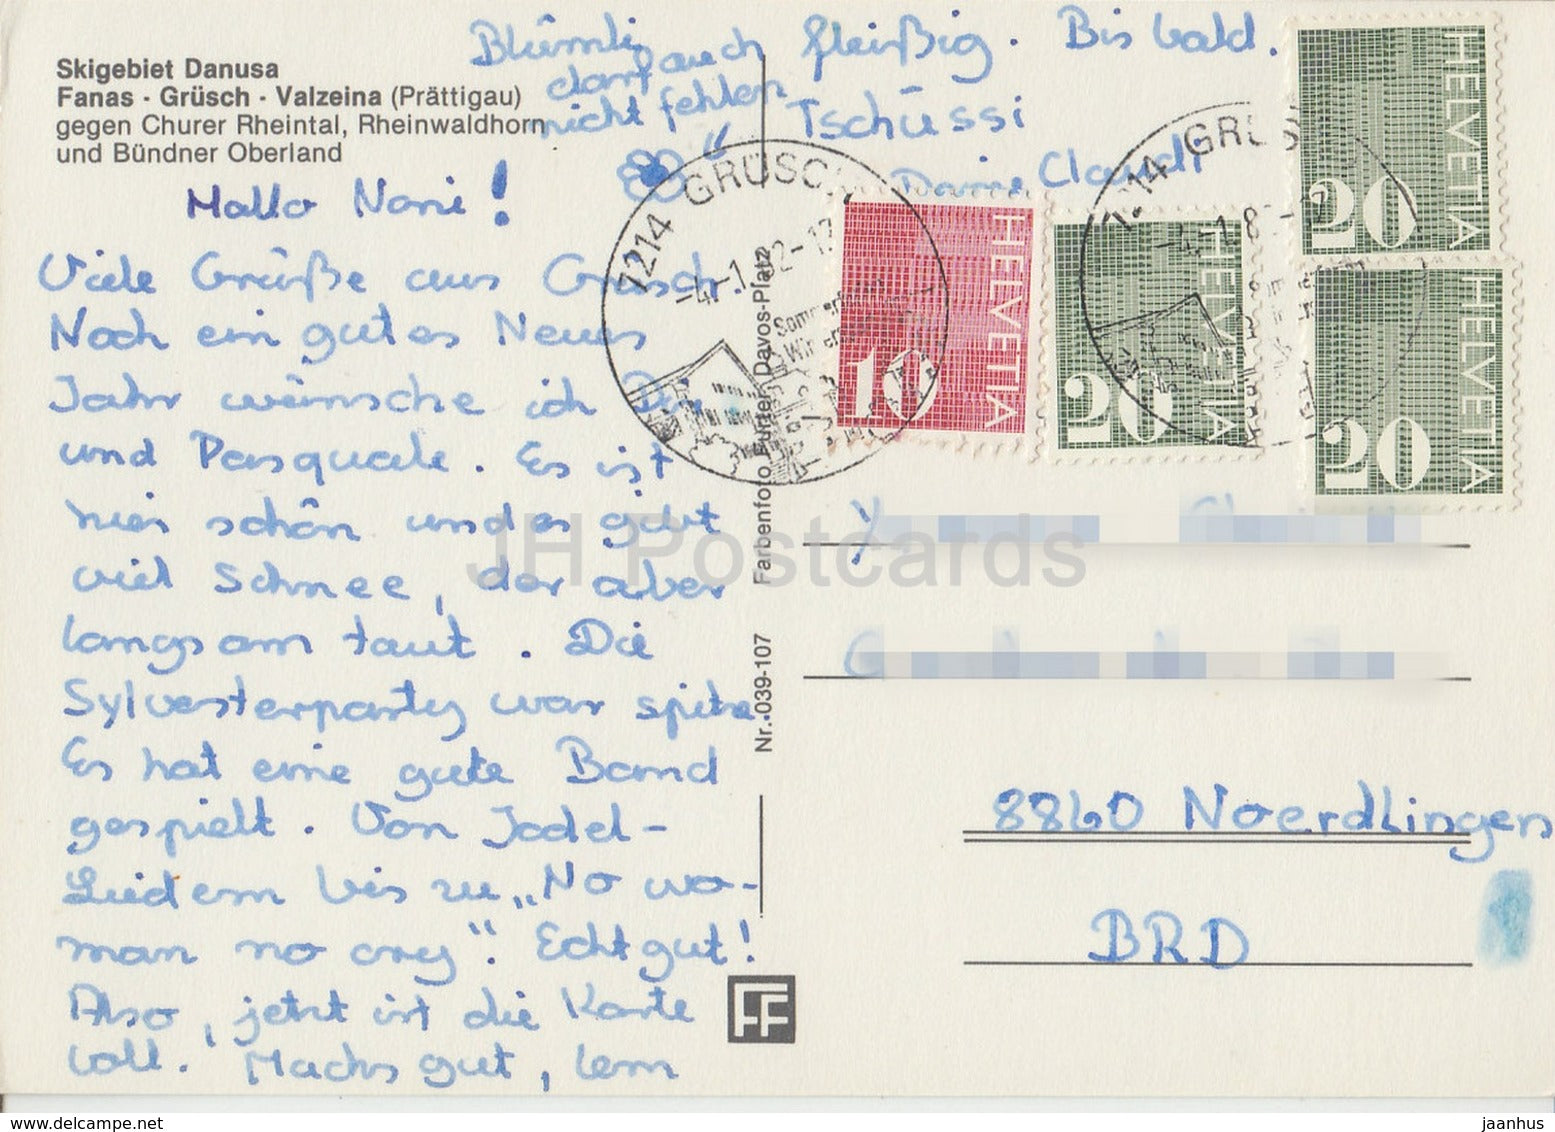 Skigebiet Danusa
Fanas · Grüsch · Valzeina (Prättigau)
gegen Churer Rheintal, Rheinwaldhorn
und Bündner Oberland
Hallo Noni!
Viele Grüße aus Grüsch.
Noch ein gutes Neues
Jahr wünsche ich Dir
und Pasquale. Es ist
hier schön und es gibt
viel Schnee, der aber
langsam taut. Die
Sylvesterparty war spitze.
Es hat eine gute Band
gespielt. Von Jodel-
Liedern bis zu „No wo-
man no cry". Echt gut!
Also, jetzt ist die Karte
voll. Machs gut, lern
auch fleißig. Bis bald.
Tschüssi
Deine Claudi
Blümli
darf
nicht fehlen
7214 GRÜSCH
-4.-1
HELVETIA
10
HELVETIA
20
HELVETIA
20
HELVETIA
20
8860 Noerdlingen
BRD
Nr. 039-107 Farbenfoto Furter, Davos-Platz
FF
JH Postcards
www.delcampe.net
jaanhus